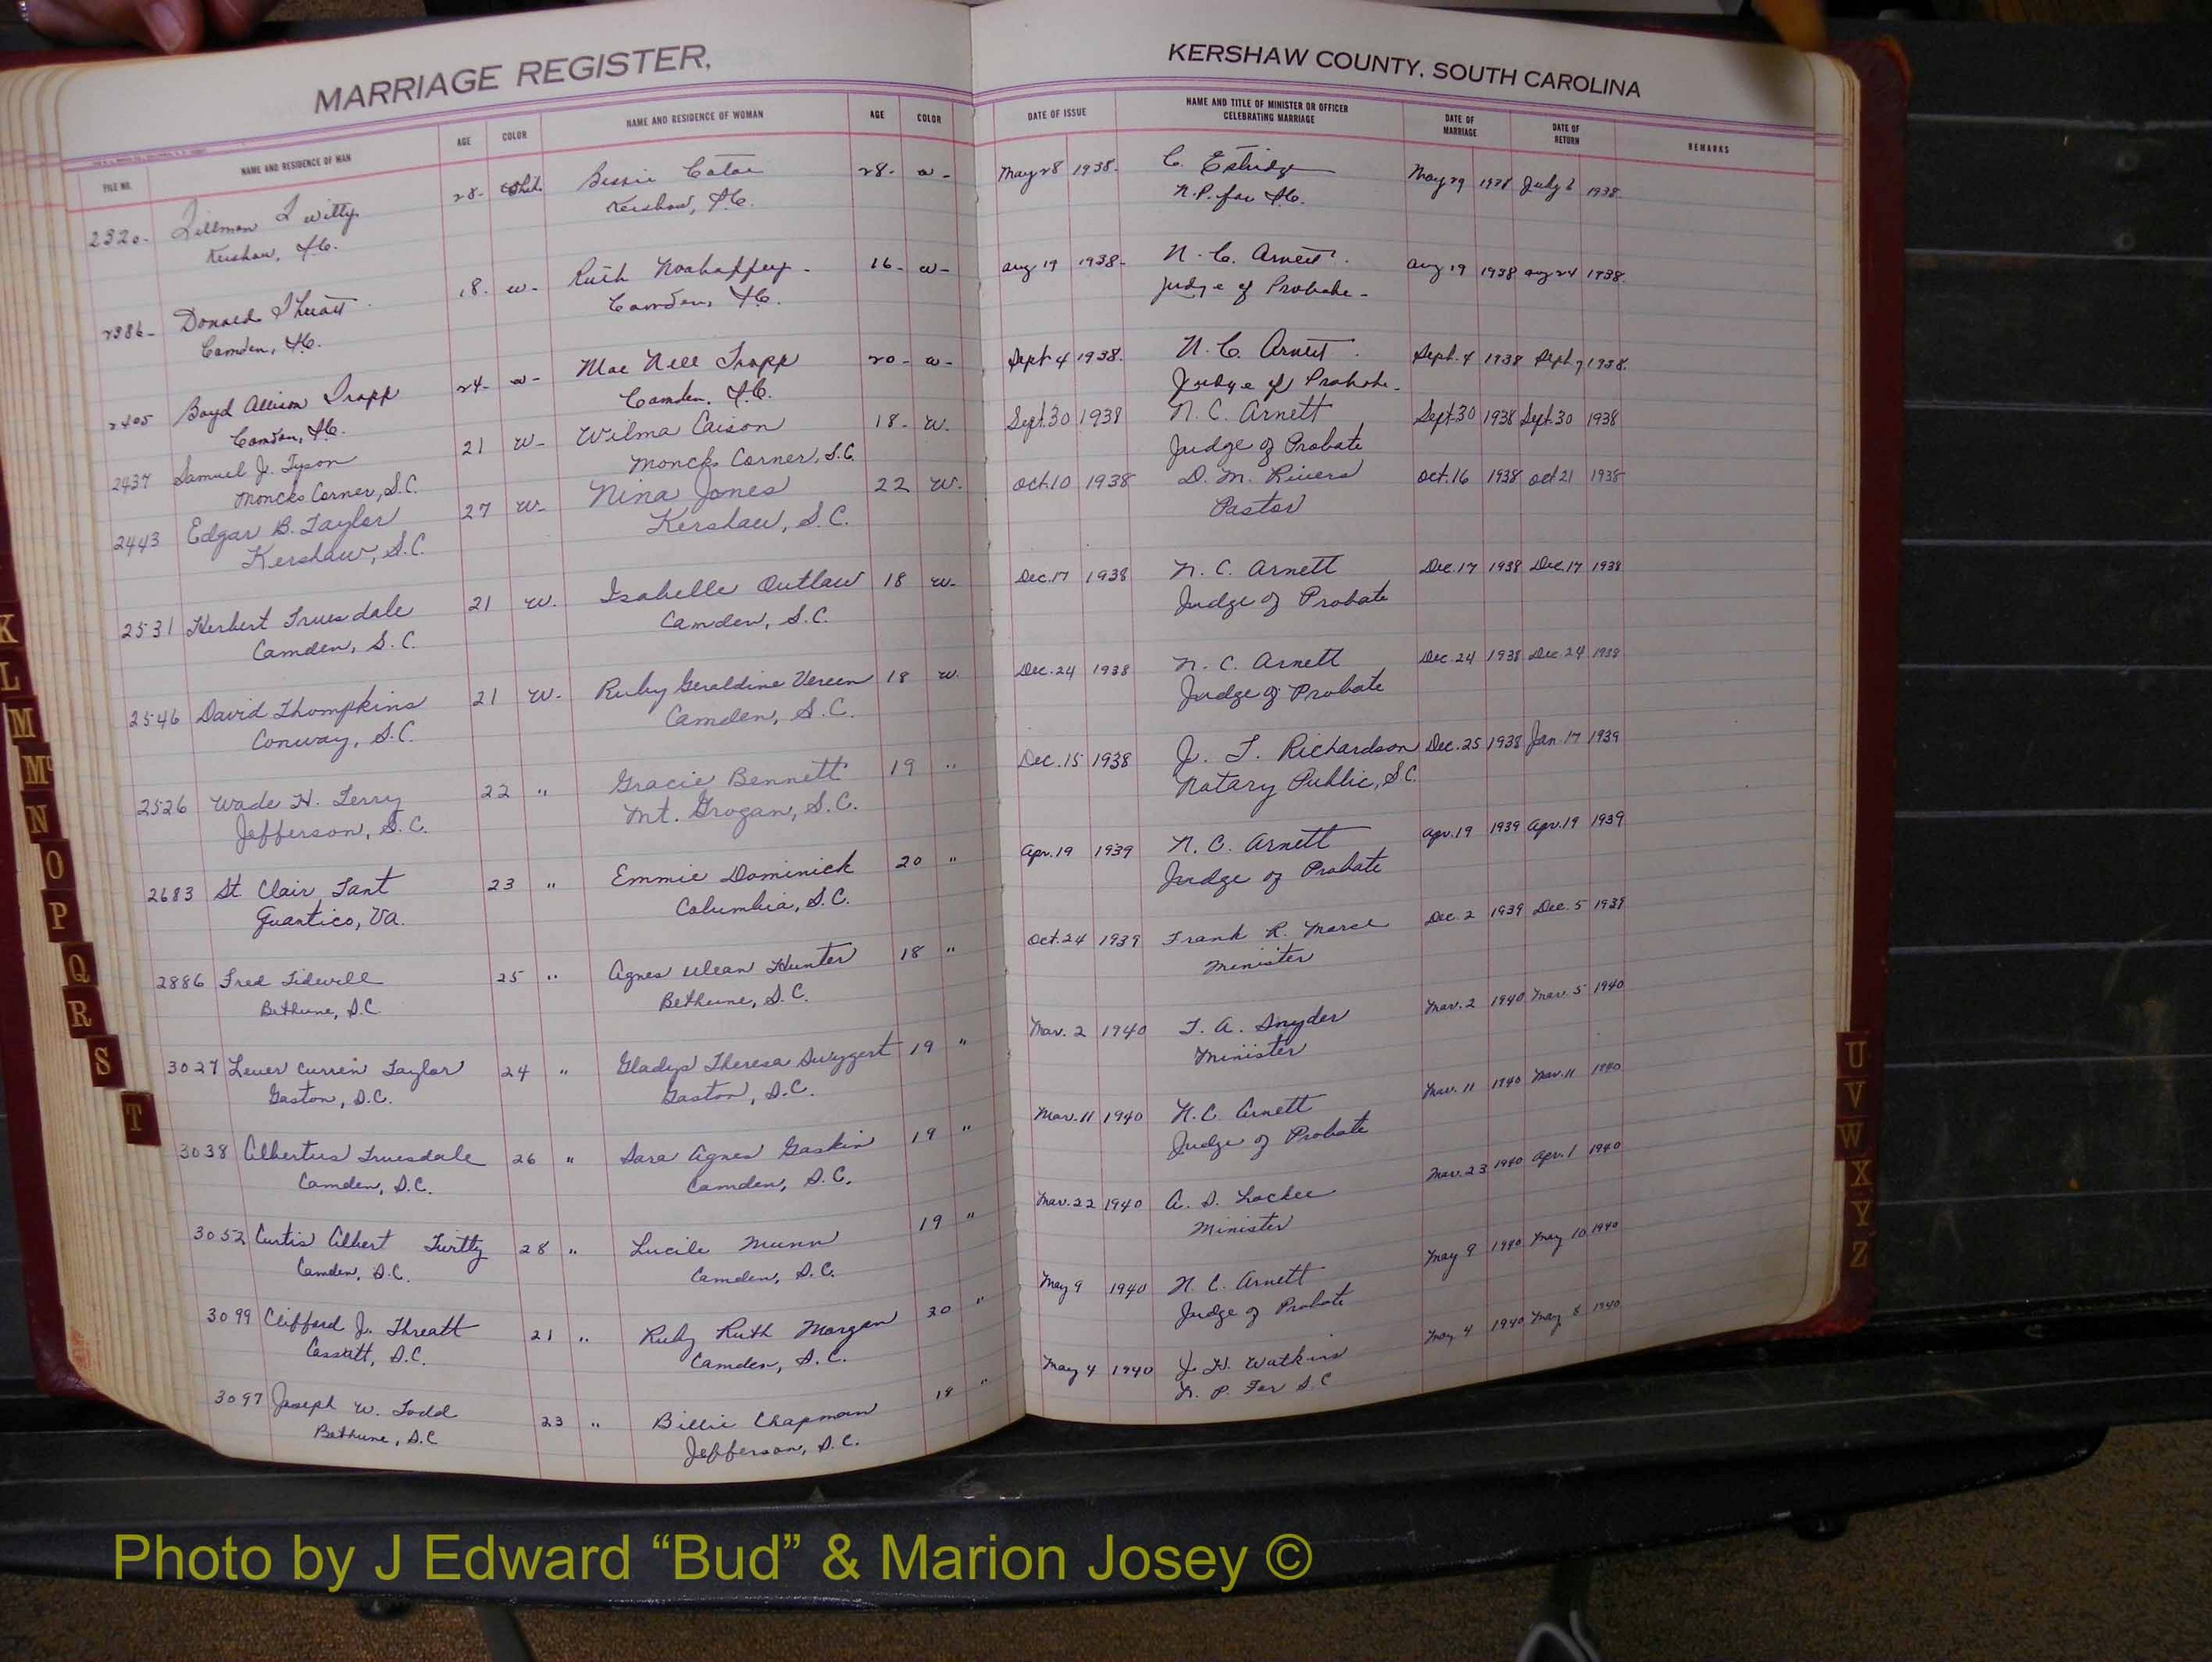 MARRIAGE REGISTER,
KERSHAW COUNTY, SOUTH CAROLINA
FILE NO. NAME AND RESIDENCE OF MAN AGE COLOR NAME AND RESIDENCE OF WOMAN AGE COLOR DATE OF ISSUE NAME AND TITLE OF MINISTER OR OFFICER CELEBRATING MARRIAGE DATE OF MARRIAGE DATE OF RETURN REMARKS
2320- Tillman Twitty 28- Bessie Catoe 28- w- May 28 1938- C. Estridge May 29 1938 July 6 1938
Kershaw, S.C. Kershaw, S.C. N.P. for S.C.
2386- Donald Threatt 18. w- Ruth 16- w- Aug 19 1938- N. C. Arnett Aug 19 1938 Aug 24 1938
Camden, S.C. Camden, S.C. Judge of Probate-
2405 Boyd Allison Trapp 24- w- Mae Nell Trapp 20- w- Sept 4 1938. N. C. Arnett Sept. 4 1938 Sept 7 1938.
Camden, S.C. Camden, S.C. Judge of Probate-
2437 Samuel J. Tyson 21 W- Wilma Caison 18- W. Sept. 30 1938 N. C. Arnett Sept 30 1938 Sept. 30 1938
Moncks Corner, S.C. Moncks Corner, S.C. Judge of Probate
2443 Edgar B. Taylor 27 W- Nina Jones 22 W. Oct. 10 1938 D. M. Rivers Oct. 16 1938 Oct 21 1938
Kershaw, S.C. Kershaw, S.C. Pastor
2531 Herbert Truesdale 21 W. Isabelle Outlaw 18 W- Dec. 17 1938 N. C. Arnett Dec. 17 1938 Dec. 17 1938
Camden, S.C. Camden, S.C. Judge of Probate
2546 David Thompkins 21 W- Ruby Geraldine Vereen 18 W. Dec. 24 1938 N. C. Arnett Dec. 24 1938 Dec. 24 1938
Conway, S.C. Camden, S.C. Judge of Probate
2526 Wade H. Terry 22 " Gracie Bennett 19 " Dec. 15 1938 J. T. Richardson Dec. 25 1938 Jan. 17 1939
Jefferson, S.C. Mt. Grogan, S.C. Notary Public, S.C.
2683 St. Clair Tant 23 " Emmie Dominick 20 " Apr. 19 1939 N. C. Arnett Apr. 19 1939 Apr. 19 1939
Quantico, Va. Columbia, S.C. Judge of Probate
2886 Fred Tidwell 25 " Agnes Hunter 18 " Oct. 24 1939 Frank R. Dec. 2 1939 Dec. 5 1939
Bethune, S.C. Bethune, S.C. Minister
3027 Lever Curren Taylor 24 " Gladys Theresa Swygert 19 " Mar. 2 1940 T. A. Snyder Mar. 2 1940 Mar. 5 1940
Gaston, S.C. Gaston, S.C. Minister
3038 Albertus Truesdale 26 " Sara Agnes Gaskin 19 " Mar. 11 1940 N. C. Arnett Mar. 11 1940 Mar. 11 1940
Camden, S.C. Camden, S.C. Judge of Probate
3052 Curtis Albert Twitty 28 " Lucile Munn 19 " Mar. 22 1940 A. D. Mar. 23 1940 Apr. 1 1940
Camden, S.C. Camden, S.C. Minister
3099 Clifford J. Threatt 21 " Ruby Ruth Morgan 20 " May 9 1940 N. C. Arnett May 9 1940 May 10 1940
Cassatt, S.C. Camden, S.C. Judge of Probate
3097 Joseph W. Todd 23 " Billie Chapman 18 " May 4 1940 J. H. Watkins May 4 1940 May 8 1940
Bethune, S.C Jefferson, S.C. N. P. For S C
K
L
M
Mc
N
O
P
Q
R
S
T
U
V
W
X
Y
Z
Photo by J Edward “Bud” & Marion Josey ©